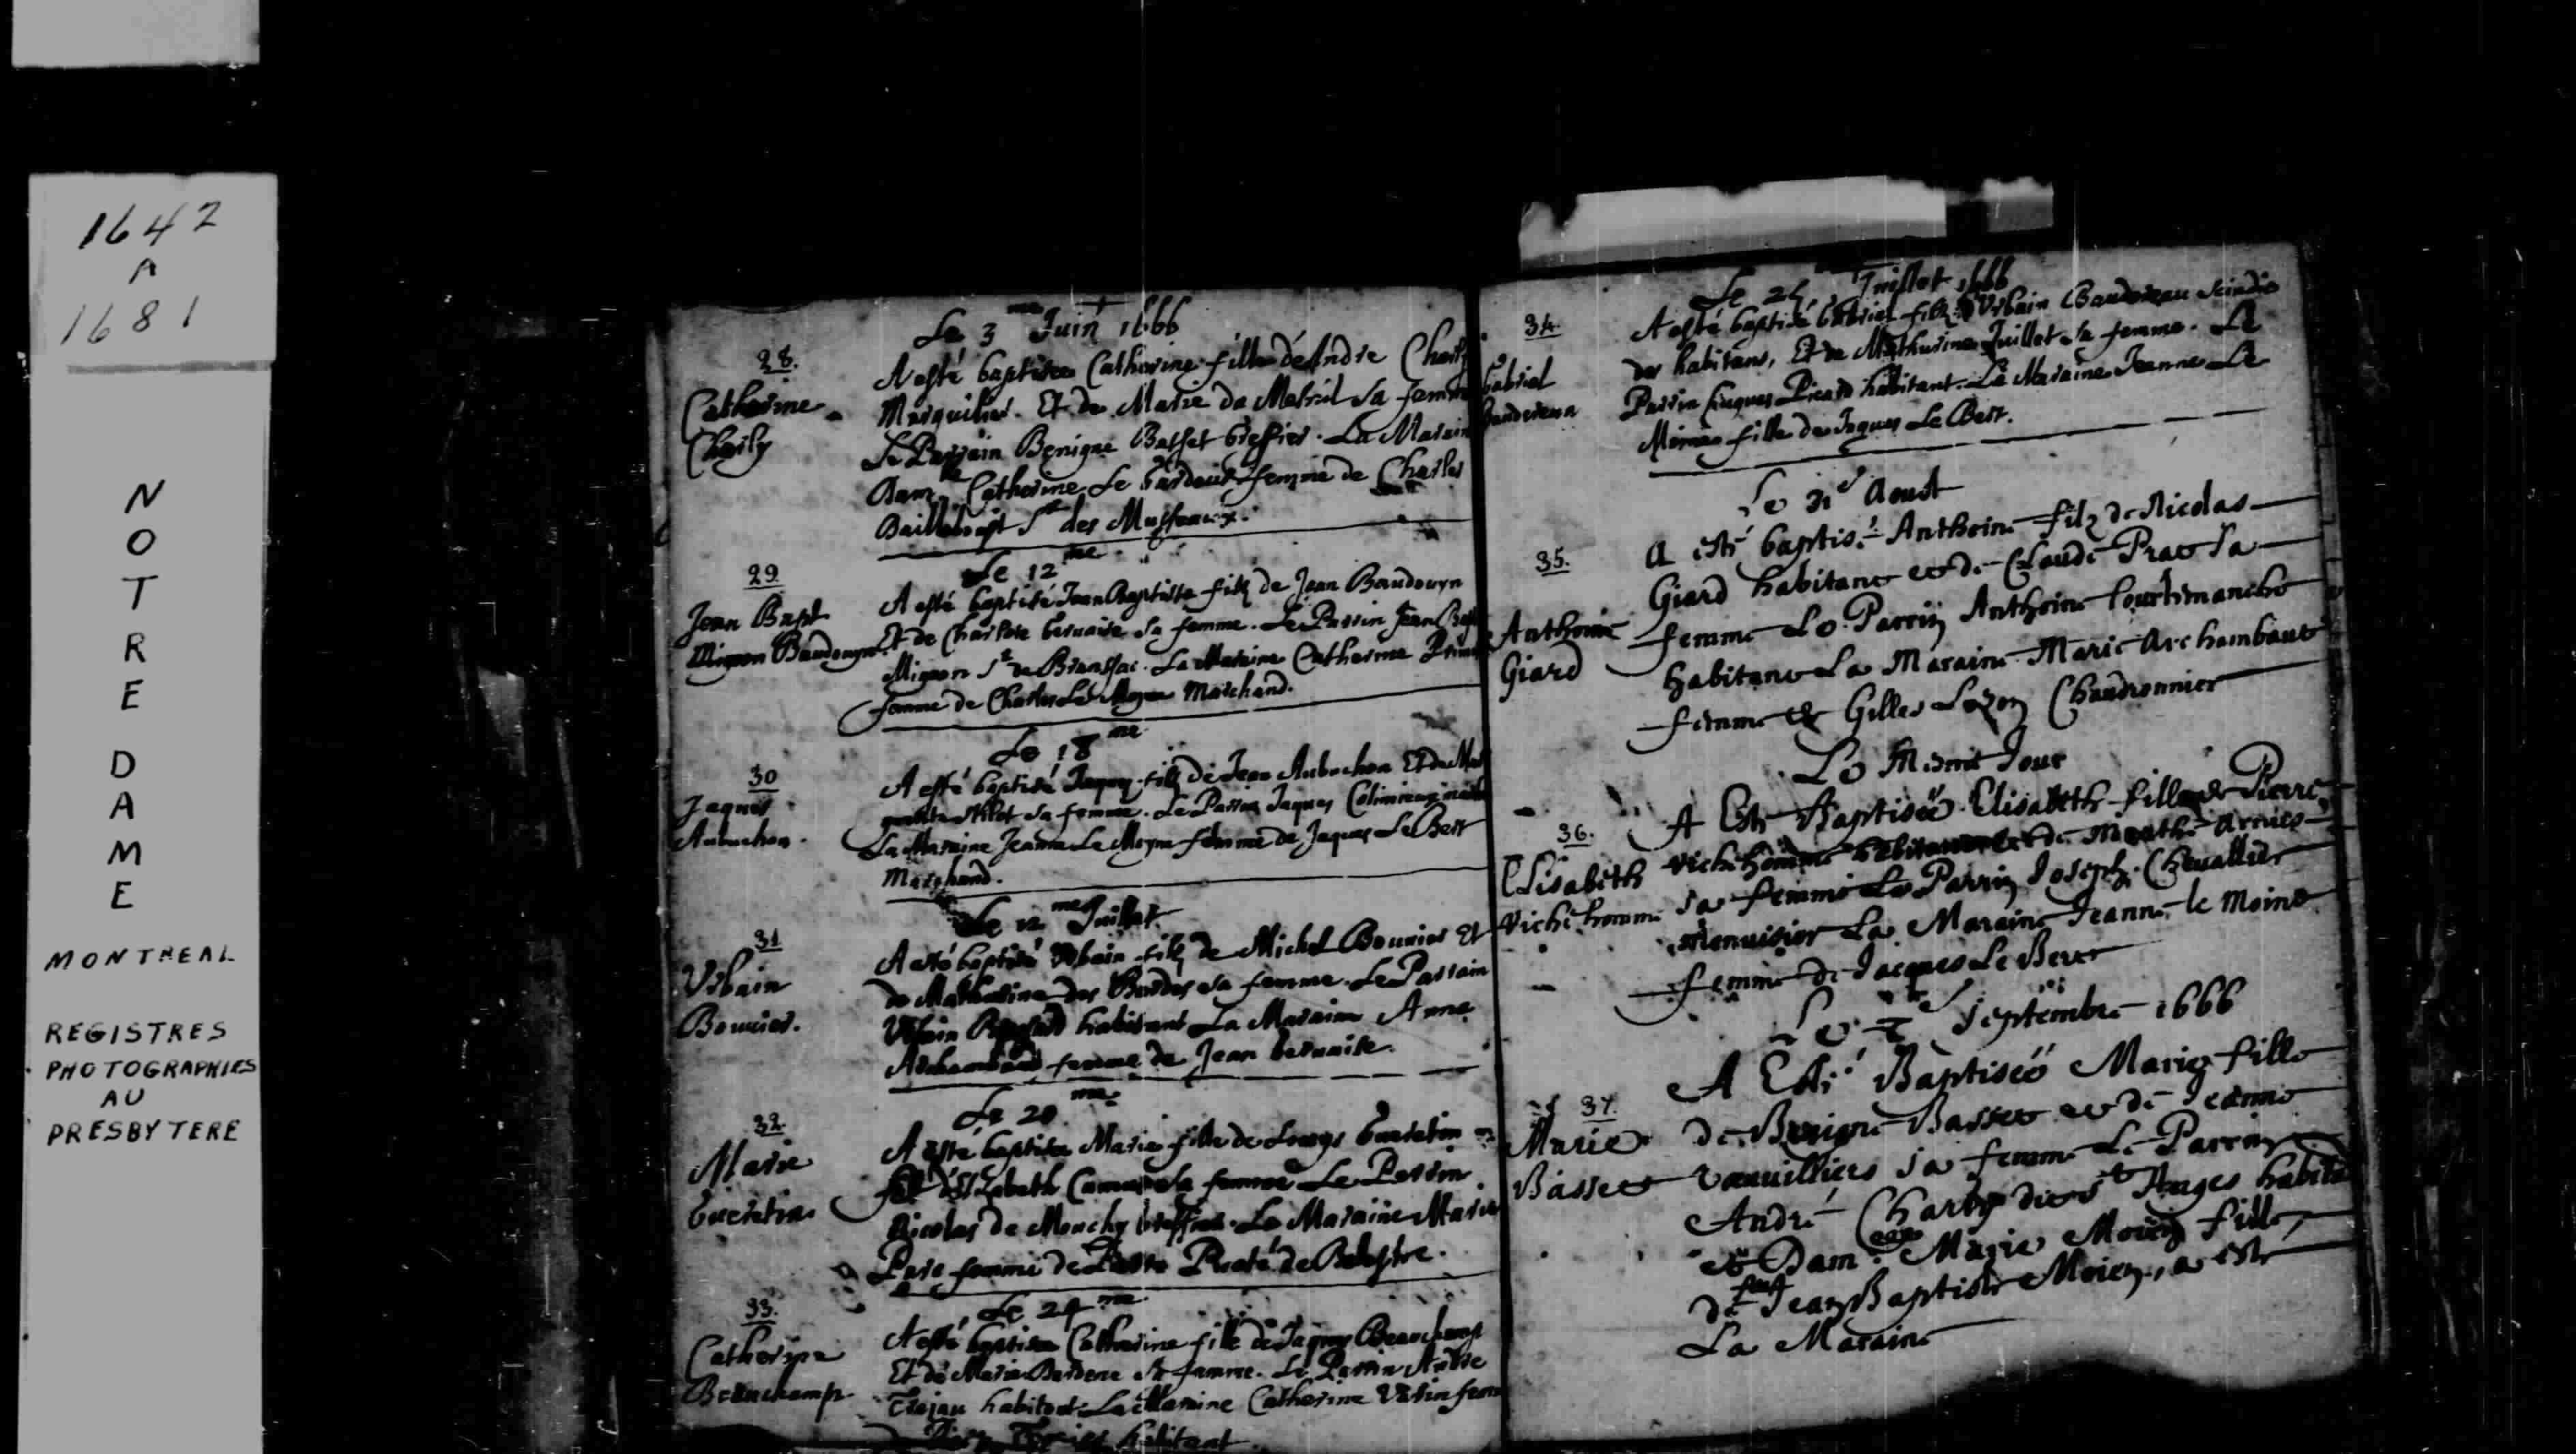 1642
A
1681
NOTRE
DAME
MONTREAL
REGISTRES
PHOTOGRAPHIES
AU
PRESBYTERE
Le 3me Juin 1666
28.
Catherine
Charly
A esté baptisée Catherine fille de Andre Charly
Marguillier. Et de Marie du Mesnil sa femme
Le Parrain Benigne Basset Greffier. La Maraine
Dam.lle Catherine Le Gardeur femme de Charles
Sr des Musseaux.
Le 12me
29.
Jean Bapt
Mignon Baudouyn.
A esté baptisé Jean Baptiste filz de Jean Baudouyn
Et de Charlote Gervaise sa femme. Le Parrin Jean Bapt
Mignon Sr de Branssac. La Maraine Catherine Primot
femme de Charles Le Moyne Marchand.
Le 18me
30
Jaques
Aubuchon.
A esté baptisé Jaques filz de Jean Aubuchon Et de Mar
sa femme. Le Parrin Jaques
La Maraine Jeanne Le Moyne femme de Jaques Le Ber
Marchand.
Le 12me Juillet
31
Urbain
Bouvier.
A esté baptisé Urbain filz de Michel Bouvier Et
de Mathurine des Bordes sa femme. Le Parrain
Urbain habitant La Maraine Anne
Archambaud femme de Jean Gervaise.
Le 20me
32.
Marie
Guertin
A esté baptisée Marie fille de Louys Guertin
Et d'Elizabeth Camus sa femme Le Parrin
Nicolas de Mouchy Greffier. La Maraine Marie
Pare femme de Pruté de Belestre.
Le 24me
33.
Catherine
Beauchamp
A esté baptisée Catherine fille de Jaques Beauchamp
Et de Marie Dardene sa femme. Le Parrin Andre
Trajau habitant La Maraine Catherine
habitant
Juillet 1666
34.
Gabriel
Baudereau
A esté baptisé Gabriel filz d'Urbain Baudereau Scindic
des habitans, Et de Mathurine Juillet sa femme. Le
Parrin Jaques Picard habitant. La Maraine Jeanne Le
Moine fille de Jaques Le Ber.
Aoust
35.
Anthoine
Giard
A esté baptisé Anthoine filz de Nicolas
Giard habitant et de Claude Prat sa
femme Le Parrin Anthoine Courtemanche
habitant La Maraine Marie Archambaut
femme de Gilles Lozon Chaudronnier
Le Mesme Jour
36.
Elisabeth
Vichehomme
A Esté Baptisée Elisabeth fille de Pierre
Vichehomme habitant et de Marthe Arnus
sa femme Le Parrin Joseph Chevallier
Menuisier La Maraine Jeanne le Moine
femme de Jacques Le Ber
Septembre 1666
37.
Marie
Basset
A Esté Baptisée Marie fille
de Benigne Basset et de Jeanne
Vauvilliers sa femme Le Parrin
André Charly dict St Anges habita
et Dam.elle Marie Moien fille
de feu Jean Baptiste Moien, a esté
La Maraine